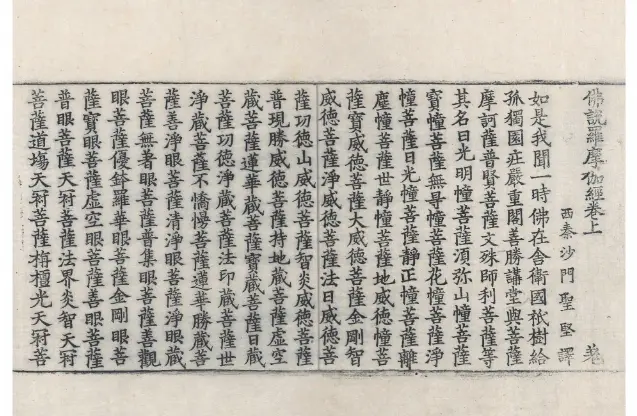 佛說羅摩伽經卷上
西秦沙門聖堅譯
如是我聞一時佛在舍衛國祇樹給
孤獨園莊嚴重閣善勝講堂與菩薩
摩訶薩普賢菩薩文殊師利菩薩等
其名曰光明幢菩薩須弥山幢菩薩
寶幢菩薩無㝵幢菩薩花幢菩薩淨
幢菩薩日光幢菩薩靜正幢菩薩離
塵幢菩薩世靜幢菩薩地威德幢菩
薩寶威德菩薩大威德菩薩金剛智
威德菩薩淨威德菩薩法日威德菩
薩功德山威德菩薩智炎威德菩薩
普現勝威德菩薩持地藏菩薩虛空
藏菩薩蓮華藏菩薩寶藏菩薩日藏
菩薩功德淨藏菩薩法印藏菩薩世
淨藏菩薩不憍慢菩薩蓮華勝藏菩
薩善淨眼菩薩清淨眼菩薩淨眼藏
菩薩無著眼菩薩普集眼菩薩善觀
眼菩薩優鉢羅華眼菩薩金剛眼菩
薩寶眼菩薩虛空眼菩薩善眼菩薩
普眼菩薩天冠菩薩法界炎智天冠
菩薩道場天冠菩薩栴檀光天冠菩